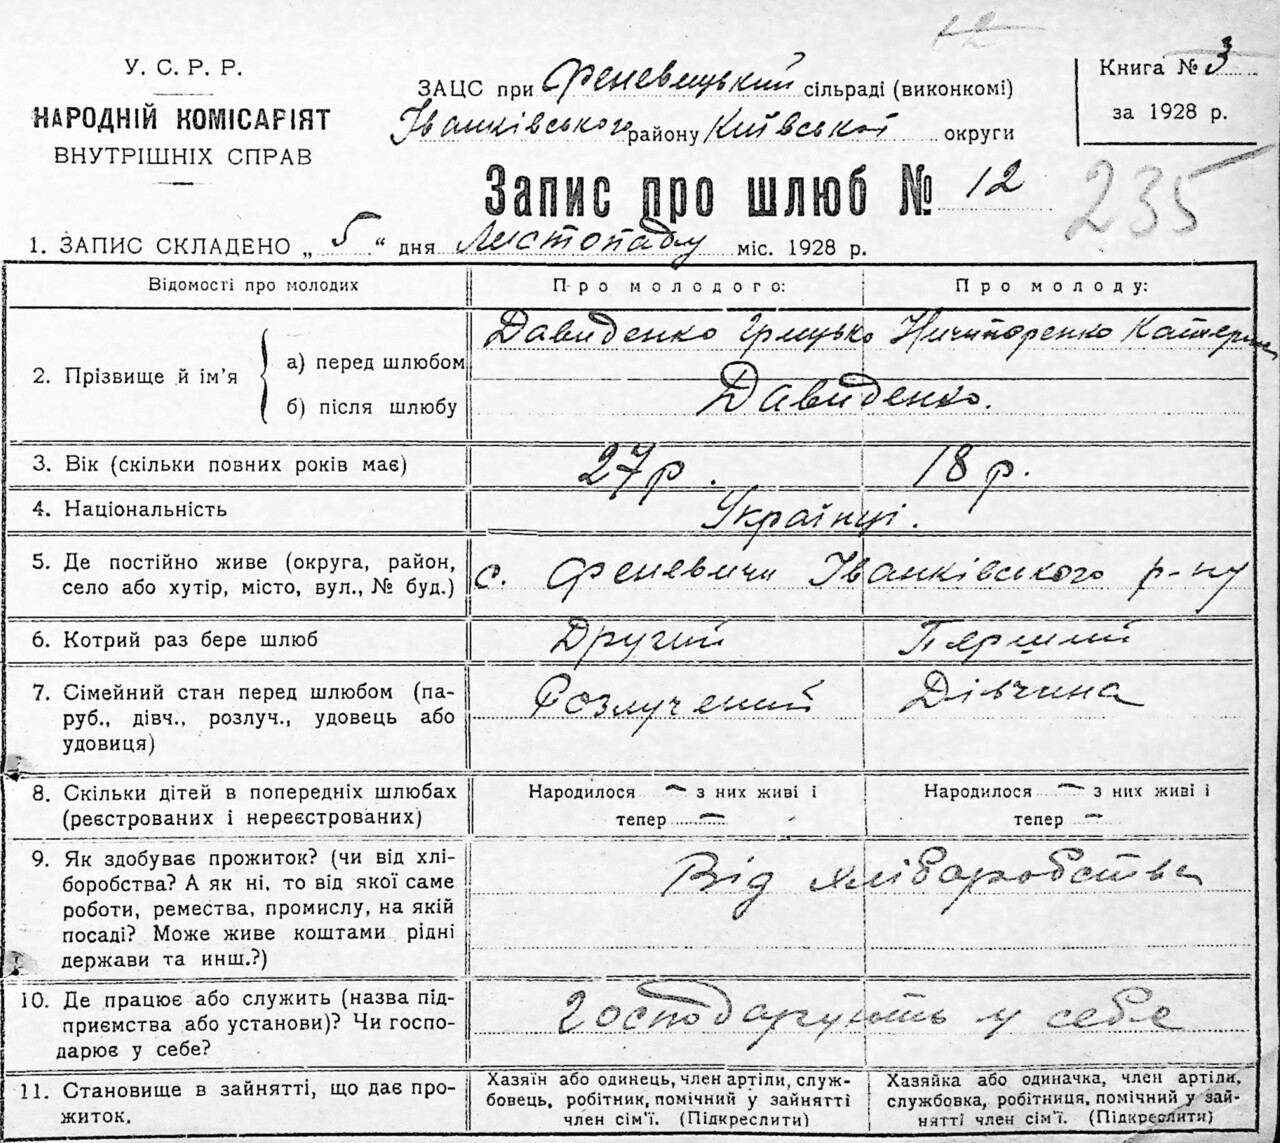 У. С. Р. Р.
НАРОДНІЙ КОМІСАРІЯТ
ВНУТРІШНІХ СПРАВ
12
ЗАЦС при Феневицький сільраді (виконкомі)
Іванківського району Київської округи
Книга № 3
за 1928 р.
Запис про шлюб № 12
235
1. ЗАПИС СКЛАДЕНО „ 5 “ дня Листопаду міс. 1928 р.
Відомості про молодих
Про молодого:
Про молоду:
2. Прізвище й ім’я
а) перед шлюбом
Давиденко Грицько
Ничипоренко Катерина
б) після шлюбу
Давиденко.
3. Вік (скільки повних років має)
27 р.
18 р.
4. Національність
Українці.
5. Де постійно живе (округа, район,
село або хутір, місто, вул., № буд.)
с. Феневичи Іванківського р-ну
6. Котрий раз бере шлюб
Другий
Перший
7. Сімейний стан перед шлюбом (па-
руб., дівч., розлуч., удовець або
удовиця)
Розлучений
Дівчина
8. Скільки дітей в попередніх шлюбах
(реєстрованих і нереєстрованих)
Народилося — з них живі і
тепер —
Народилося — з них живі і
тепер —
9. Як здобуває прожиток? (чи від хлі-
боробства? А як ні, то від якої саме
роботи, ремества, промислу, на якій
посаді? Може живе коштами рідні
держави та инш.?)
Від хліборобства
10. Де працює або служить (назва під-
приємства або установи)? Чи госпо-
дарює у себе?
Господарують у себе
11. Становище в зайнятті, що дає про-
житок.
Хазяїн або одинець, член артіли, служ-
бовець, робітник, помічний у зайнятті
член сім’ї. (Підкреслити)
Хазяйка або одиначка, член артіли,
службовка, робітниця, помічний у зай-
нятті член сім’ї. (Підкреслити)